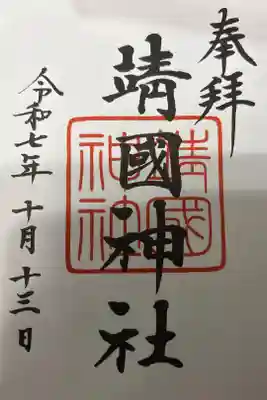 奉拝
靖國神社
靖國神社
令和七年十月十三日